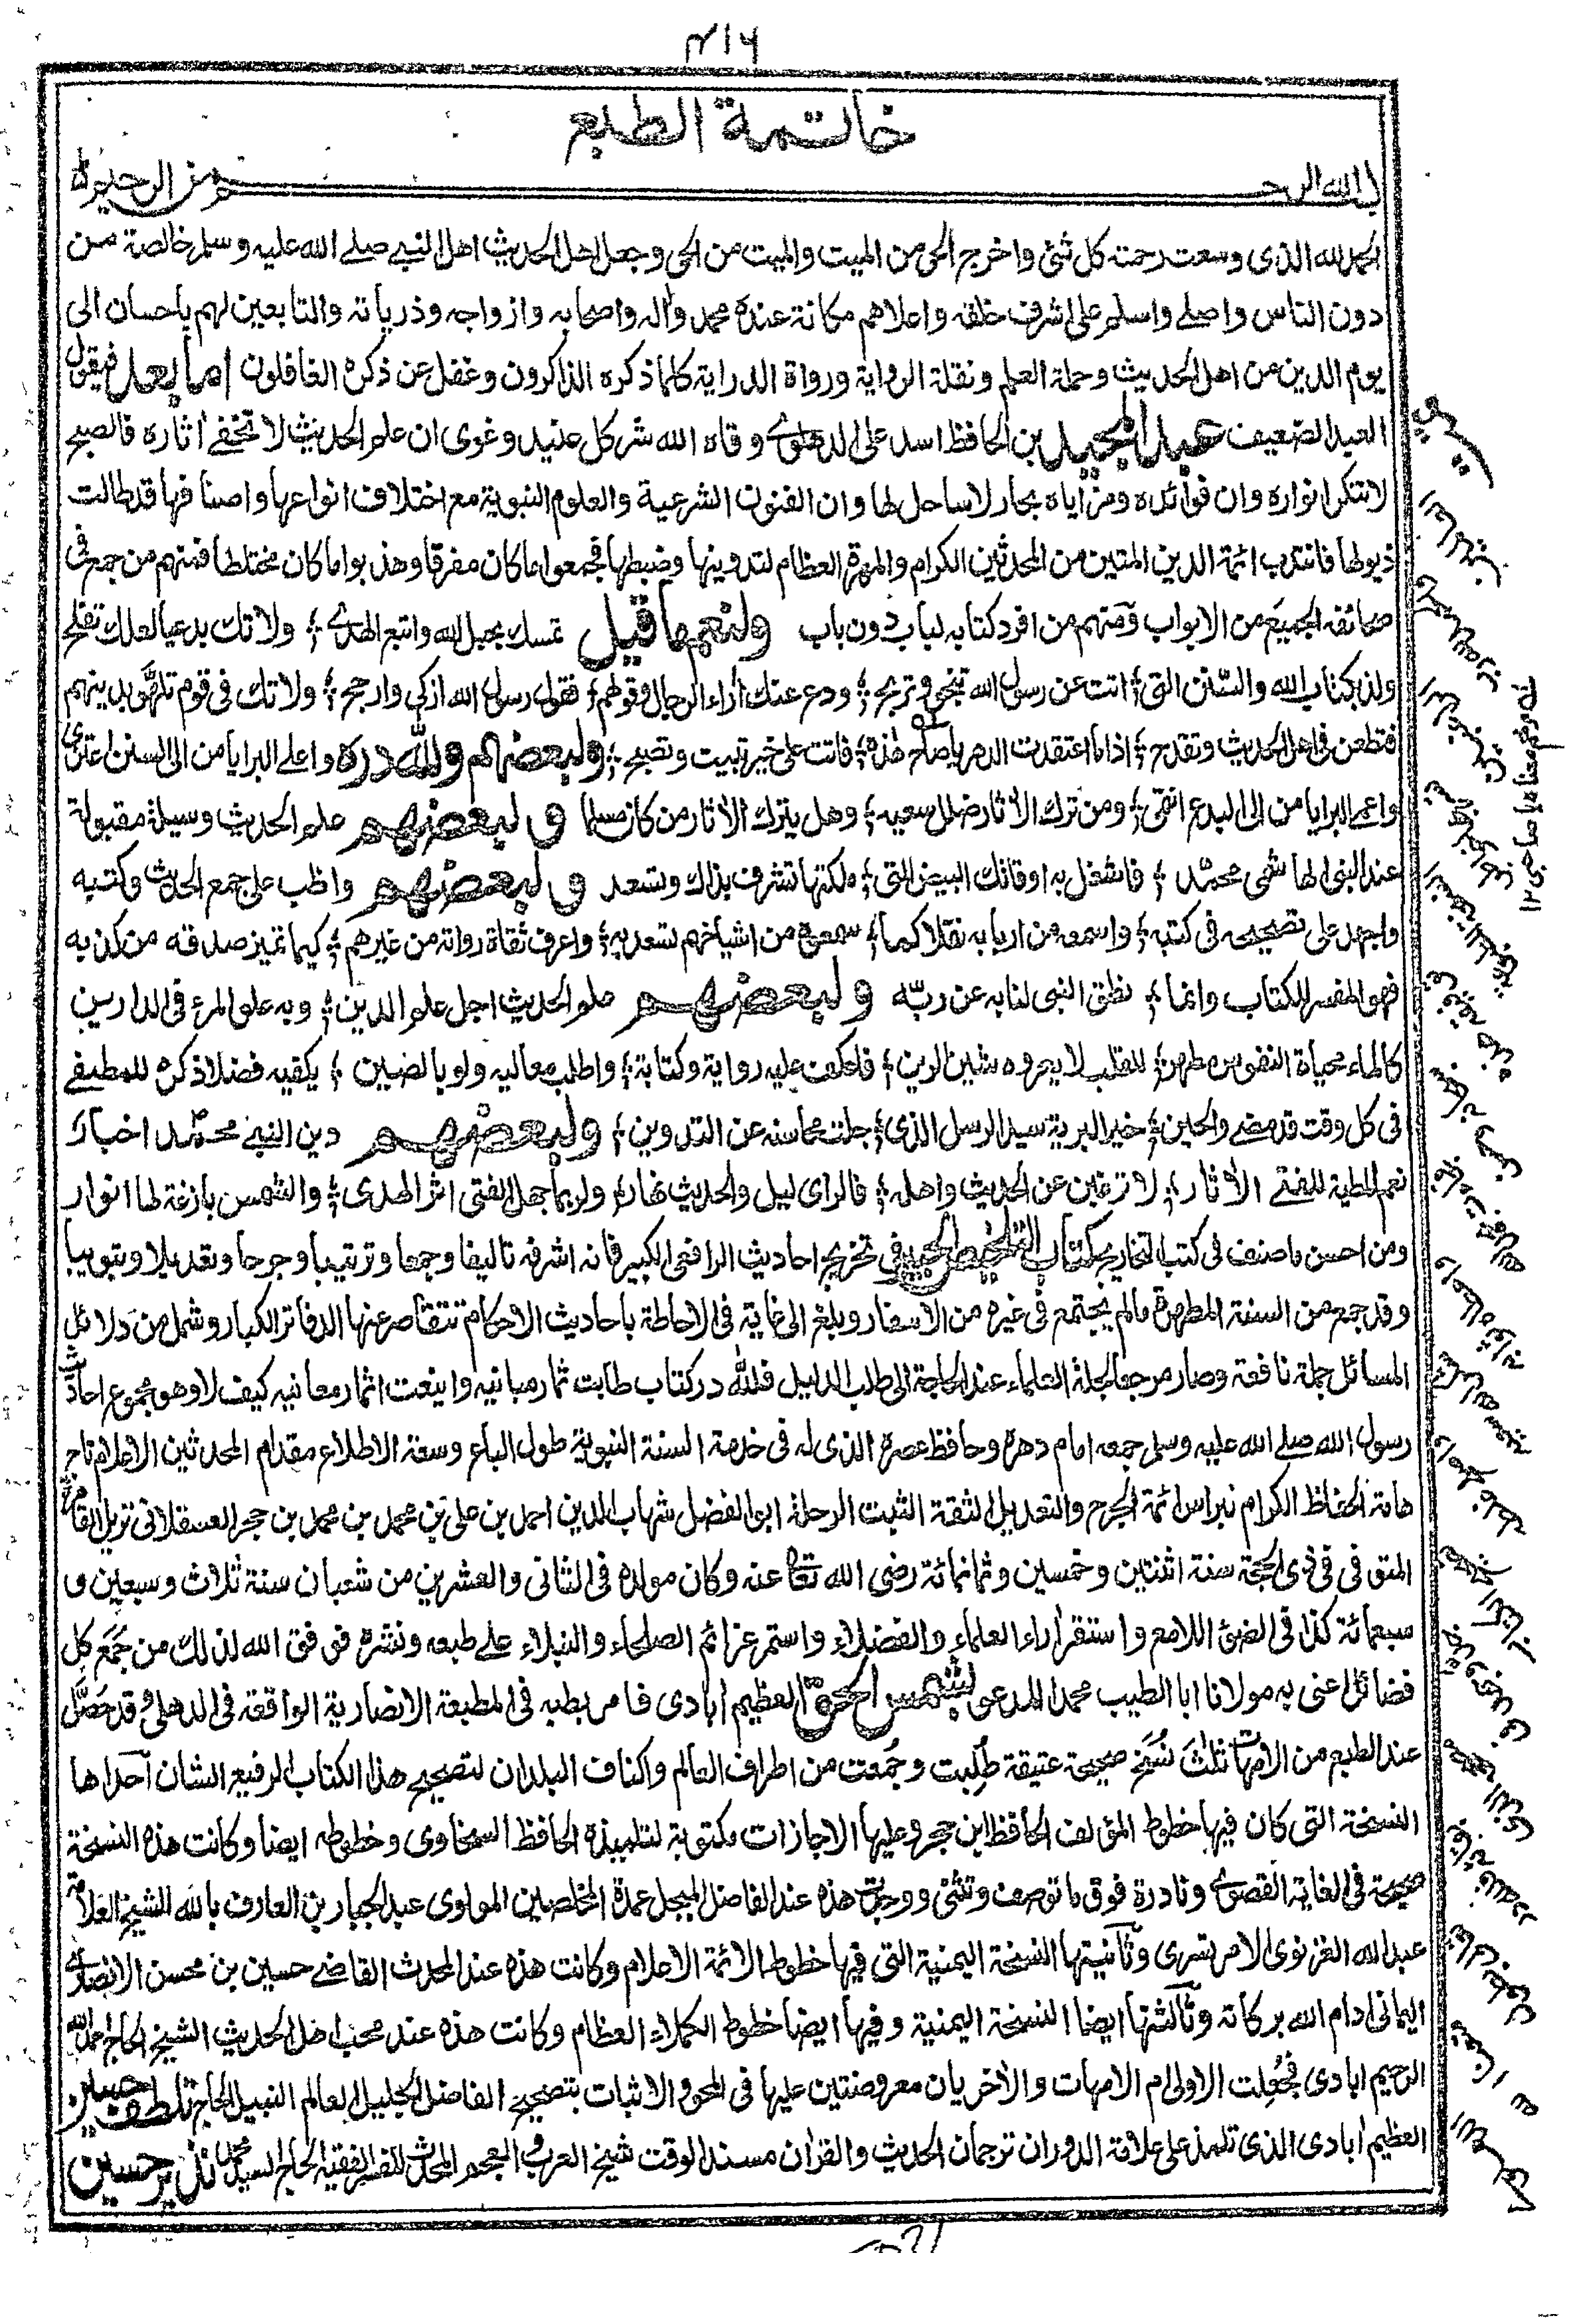 ۴۱۶
خاتمة الطبع
بسم الله الرحمن الرحيم
الحمد لله الذى وسعت رحمته كل شئ واخرج الحى من الميت والميت من الحى وجعل اهل الحديث اهل النبى صلے الله عليه وسلم خالصة من
دون الناس واصلے واسلم على اشرف خلقه واعلاهم مكانة عنده محمد واله واصحابه وازواجه وذرياته والتابعين لهم باحسان الى
يوم الدين من اهل الحديث وحملة العلم ونقلة الرواية ورواة الدراية كلما ذكره الذاكرون وغفل عن ذكره الغافلون اما بعد فيقول
العبد الضعيف عبد المجيد بن الحافظ اسد على الدهلوے وقاه الله شر كل عنيد وغوى ان علم الحديث لا تخفے اثاره فالصبح
لا تنكر انواره وان فوائده ومزاياه بحار لا ساحل لها وان الفنون الشرعية والعلوم النبوية مع اختلاف انواعها واصنافها قد طالت
ذيولها فانتدب ائمة الدين المتين من المحدثين الكرام والمهرة العظام لتدوينها وضبطها فجمعوا ما كان مفرقا وهذبوا ما كان مختلطا فمنهم من جمع فى
صحائفه الجميع من الابواب ومنهم من افرد كتابه لباب دون باب ولنعم ما قيل تمسك بحبل الله واتبع الهدے ؛ ولا تك بدعيا لعلك تفلح
ولذ بكتاب الله والسنن التى ؛ اتت عن رسول الله تنجى وتربح ؛ ودع عنك اراء الرجال وقولهم ؛ فقول رسول الله ازكى وارجح ؛ ولا تك فى قوم تلهوا بدينهم
فتطعن فى اهل الحديث وتقدح ؛ اذا ما اعتقدت الدهر يا صاح هذه ؛ فانت على خير تبيت وتصبح ؛ ولبعضهم ولله دره واعلے البرايا من الى السنن اعتزى
واعمے البرايا من الى البدع انتمى ؛ ومن ترك الاثار ضلل سعيه ؛ وهل يترك الاثار من كان مسلما ولبعضهم علم الحديث وسيلة مقبولة
عند النبى الهاشمى محمد ؛ فاشغل به اوقاتك البيض التى ؛ ملكتها تشرف بذاك وتسعد ولبعضهم واظب على جمع الحديث وكتبه
واجهد على تصحيحه فى كتبه ؛ واسمعه من اربابه نقلا كما ؛ سمعوه من اشياخهم تسعد به ؛ واعرف ثقاة رواته من غيرهم ؛ كيما تميز صدقه من كذبه
فهو المفسر للكتاب وانما ؛ نطق النبى لنا به عن ربه ولبعضهم علم الحديث اجل علم الدين ؛ وبه علو المرء فى الدارين
كالماء محياة النفوس مطهر ؛ للقلب لا يعروه شين الرين ؛ فاعكف عليه رواية وكتابة ؛ واطلب معاليه ولو بالصين ؛ يكفيه فضلا ذكره للمصطفے
فى كل وقت قد مضے والحين ؛ خير البرية سيد الرسل الذى ؛ جلت محاسنه عن التدوين ؛ ولبعضهم دين النبے محمد اخبار
نعم المطية للفتے الاثار ؛ لا ترغبن عن الحديث واهله ؛ فالراى ليل والحديث نهار ؛ ولربما جهل الفتى اثر الهدى ؛ والشمس بازغة لها انوار
ومن احسن ما صنف فى كتب التخاريج كتاب التلخيص الحبير فى تخريج احاديث الرافعى الكبير فانه اشرفه تاليفا وجمعا وترتيبا وجرحا وتعديلا وتبويبا
وقد جمع من السنة المطهرة مالم يجتمع فى غيره من الاسفار وبلغ الى غاية فى الاحاطة باحاديث الاحكام تتقاصر عنها الدفاتر الكبار وشمل من دلائل
المسائل جملة نافعة وصار مرجعا لجلة العلماء عند الحاجة الى طلب الدليل فلله در كتاب طابت ثمار مبانيه واينعت اثمار معانيه كيف لا وهو مجموع احاديث
رسول الله صلے الله عليه وسلم جمعه امام دهره وحافظ عصره الذى له فى خدمة السنة النبوية طول الباع وسعة الاطلاع مقدام المحدثين الاعلام تاج
هامة الحفاظ الكرام نبراس ائمة الجرح والتعديل الثقة الثبت الرحلة ابو الفضل شهاب الدين احمد بن على بن محمد بن محمد بن حجر العسقلانى نزيل القاهرة
المتوفى فى ذى الحجة سنة اثنتين وخمسين وثمانمائة رضى الله تعالى عنه وكان مولده فى الثانى والعشرين من شعبان سنة ثلاث وسبعين و
سبعمائة كذا فى الضوء اللامع واستقر اراء العلماء والفضلاء واستمر عزائم الصلحاء والنبلاء علے طبعه ونشره فوفق الله لذلك من جمع كل
فضائل اعنى به مولانا ابا الطيب محمد المدعو بشمس الحق العظيم ابادى فامر بطبعه فى المطبعة الانصارية الواقعة فى الدهلى وقد حصل
عند الطبع من الامهات ثلث نسخ صحيحة عتيقة طلبت وجمعت من اطراف العالم واكناف البلدان لتصحيح هذا الكتاب الرفيع الشان احداها
النسخة التى كان فيها خطوط المؤلف الحافظ ابن حجر وعليها الاجازات مكتوبة لتلميذه الحافظ السخاوى وخطوطه ايضا وكانت هذه النسخة
صحيحة فى الغاية القصوے ونادرة فوق ما توصف وتثنى ووجدت هذه عند الفاضل المبجل عمدة المخلصين المولوى عبد الجبار بن العارف بالله الشيخ العلامة
عبد الله الغزنوى الامرتسرى وثانيتها النسخة اليمنية التى فيها خطوط الائمة الاعلام وكانت هذه عند المحدث القاضے حسين بن محسن الانصارے
اليمانى ادام الله بركاته وثالثتها ايضا النسخة اليمنية وفيها ايضا خطوط الكملاء العظام وكانت هذه عند محب اهل الحديث الشيخ الحاج احمد الله
الرحيم ابادى فجعلت الاولى ام الامهات والاخريان معروضتين عليها فى المحو والاثبات بتصحيح الفاضل الجليل العالم النبيل الحاج تلطف حسين
العظيم ابادى الذى تلمذ على علامة الدوران ترجمان الحديث والقران مسند الوقت شيخ العرب والعجم المحدث المفسر الفقيه الحاج السيد محمد نذير حسين